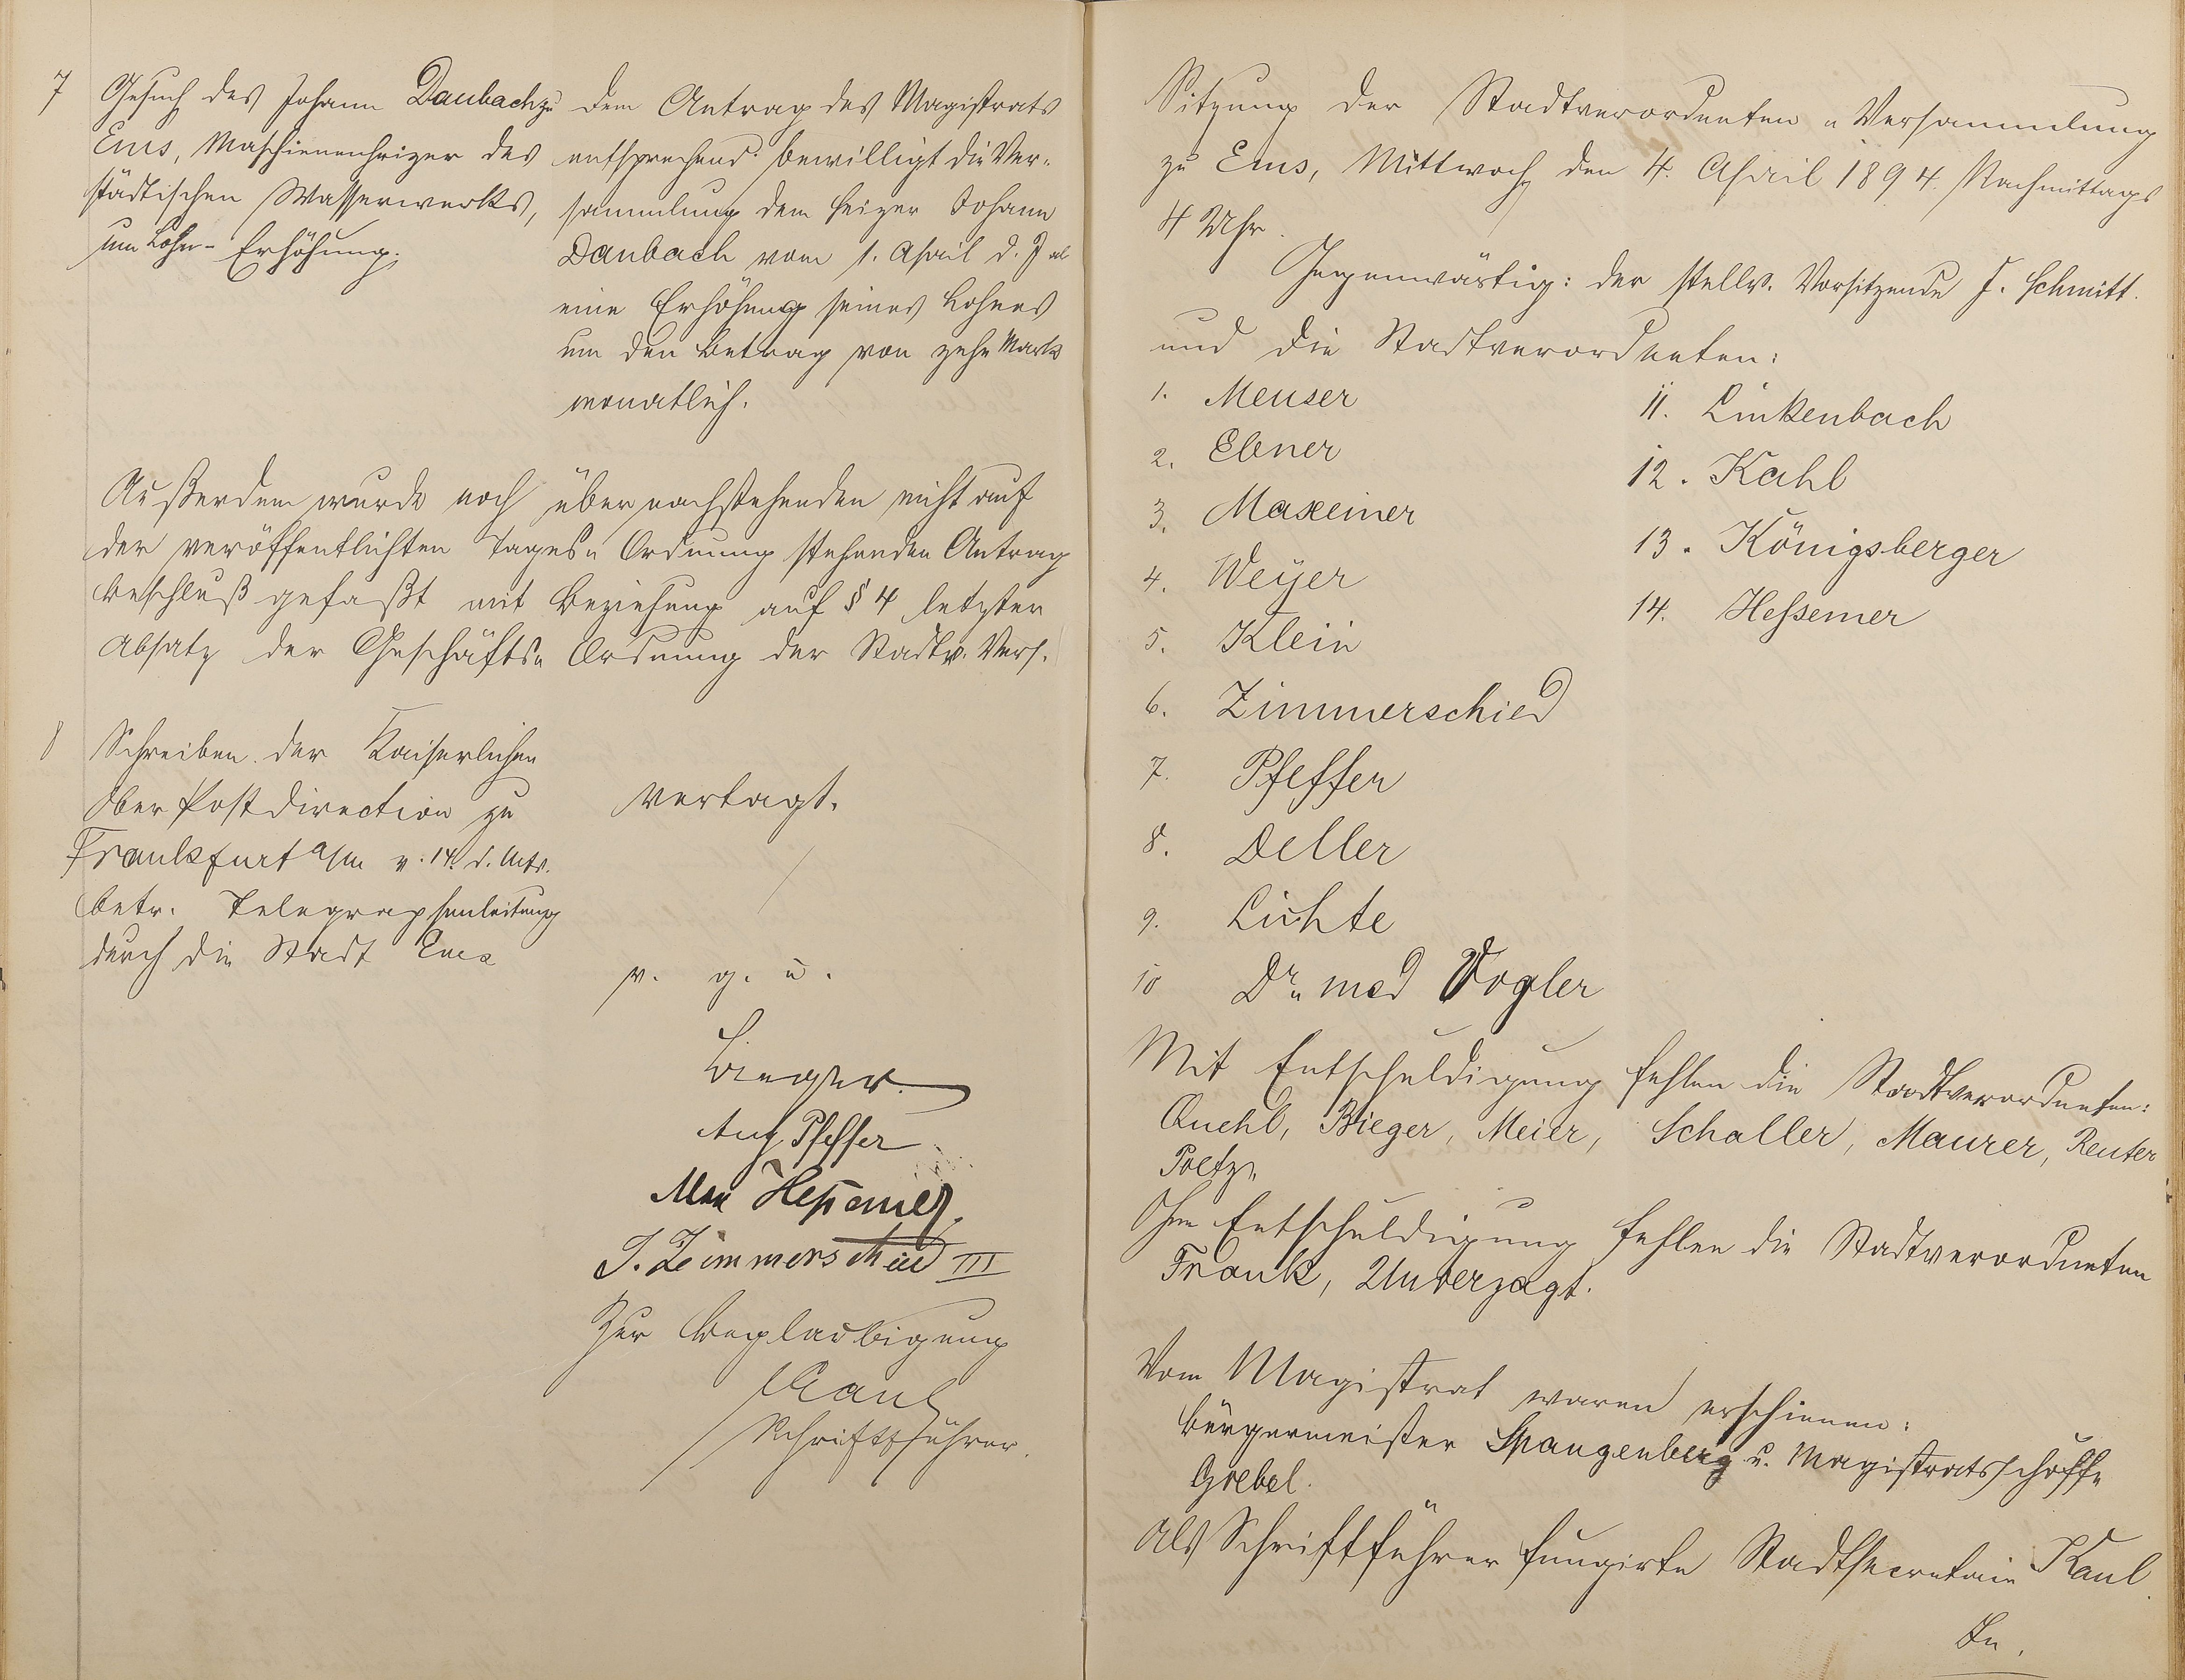 7 Gesuch des Johann Daubach zu
Ems, Maschienenheizer des
städtischen Wasserwerks,
um Lohn-Erhöhung.
Dem Antrag des Magistrats
entsprechend bewilligt die Ver-
sammlung dem Heizer Johann
Daubach vom 1. April d. J. ab
eine Erhöhung seines Lohnes
um den Betrag von zehn Mark
monatlich.
Außerdem wurde noch über nachstehenden nicht auf
der veröffentlichten Tages-Ordnung stehenden Antrag
Beschluß gefaßt mit Beziehung auf § 4 letzter
Absatz der Geschäfts-Ordnung der Stadtv. Vers.
8 Schreiben der Kaiserlichen
Ober Postdirection zu
Frankfurt a/m v. 14. d. Mts.
betr. Telegraphenleitung
durch die Stadt Ems
vertagt.
v. g. u.
Bieger
Aug. Pfeffer
Max Heßemer
J. Zimmerschied III
Zur Beglaubigung
Kaul
Schriftführer.
Sitzung der Stadtverordneten-Versammlung
zu Ems, Mittwoch den 4. April 1894. Nachmittags
4 Uhr.
Gegenwärtig: der stellv. Vorsitzende J. Schmitt.
und die Stadtverordneten:
1. Meuser
2. Ebner
3. Maxeiner
4. Weyer
5. Klein
6. Zimmerschied
7. Pfeffer
8. Deller
9. Lichte
10 Dr. med Vogler
11. Linkenbach
12. Kahl
13. Königsberger
14. Heßemer
Mit Entschuldigung fehlen die Stadtverordneten:
Quehl, Bieger, Meier, Schaller, Maurer, Reuter
Poetz.
Ohne Entschuldigung fehlen die Stadtverordneten
Frank, Unverzagt.
Vom Magistrat waren erschienen:
Bürgermeister Spangenberg u. Magistratsschöffe
Goebel.
Als Schriftführer fungirte Stadtsecretair Kaul.